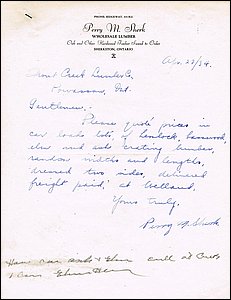 PHONE: RIDGEWAY
Perry M. Sherk
WHOLESALE LUMBER
Oak and Other Hardwood Timber Sawed to Order
SHERKSTON, ONTARIO
Apr. 23/34.
Creek Lumber Co.
Powassan, Ont.
Gentlemen,-
Please quote prices in
car loads lots of hemlock, basswood,
elm and ash crating lumber,
random widths and lengths,
dressed two sides, delivered
freight paid, at Welland,
Yours truly,
Perry M. Sherk
Have car ash & Elm
1 Car